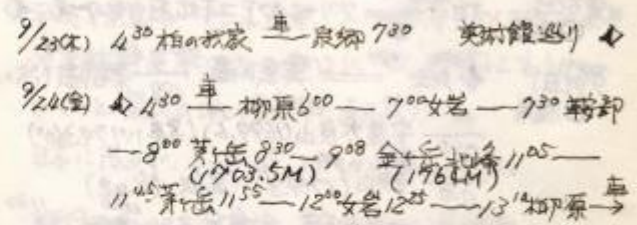 9/23(木) 4³⁰ 柏の我家 —車— 泉郷 7³⁰ 美術館巡り
9/24(金) 4³⁰ —車— 柳原 6⁰⁰ — 7⁰⁰ 女岩 — 7³⁰ 鞍部
— 8⁰⁰ 茅ヶ岳 8³⁰ — 9⁰⁸ 金ヶ岳北峰 11⁰⁵ —
(1703.5M) (1764M)
11⁴⁵ 茅ヶ岳 11⁵⁵ — 12⁰⁰ 女岩 12²⁵ — 13¹⁰ 柳原 —車→